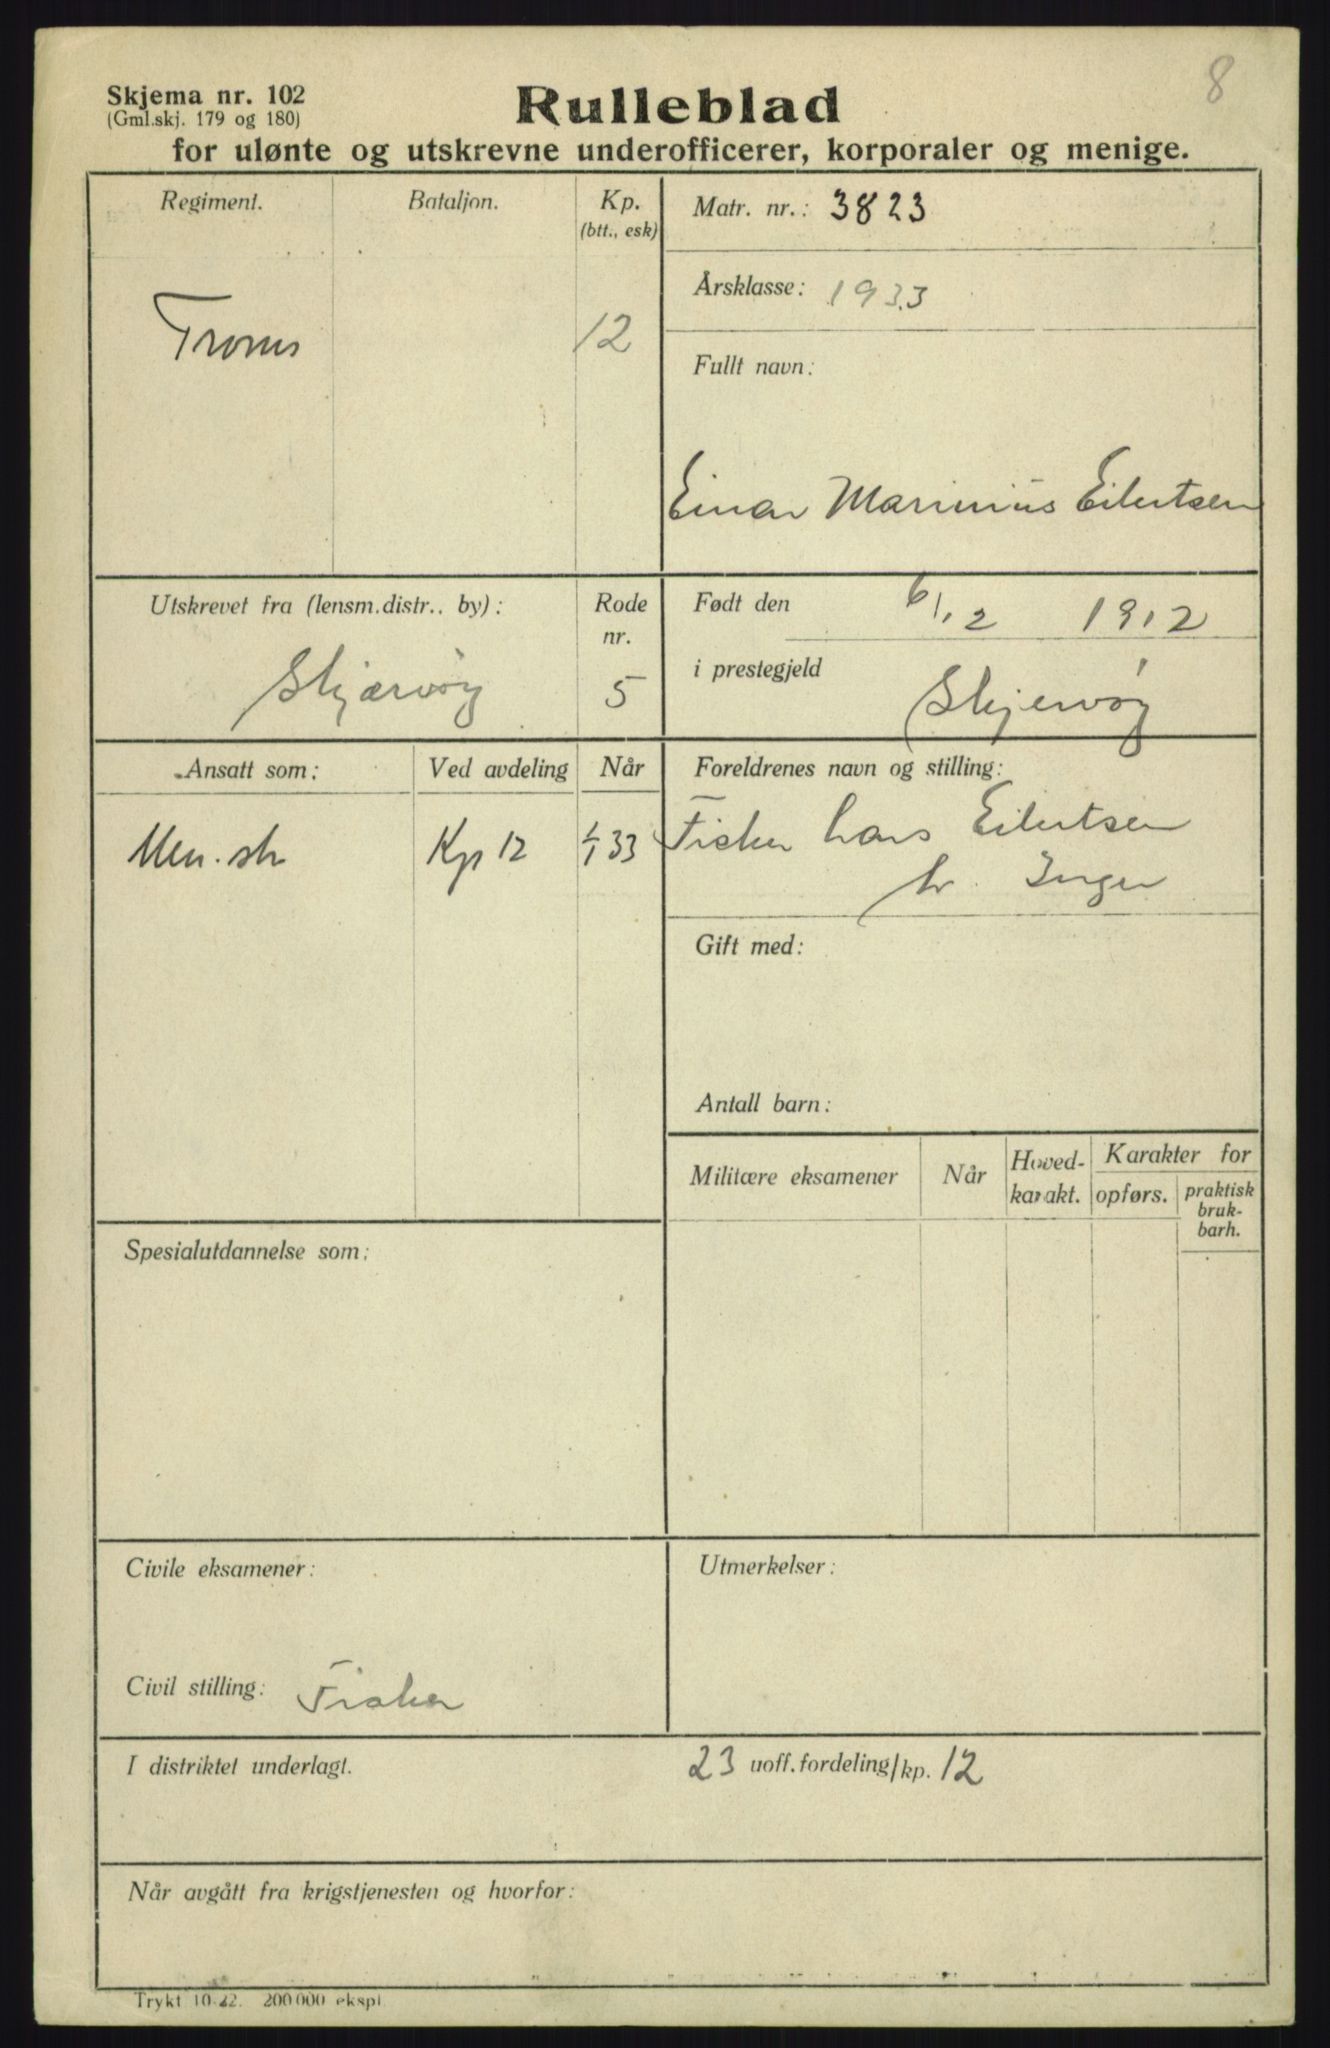 8
Skjema nr. 102
(Gml.skj. 179 og 180)
Rulleblad
for ulønte og utskrevne underofficerer, korporaler og menige.
Regiment.
Bataljon.
Kp.
(btt., esk)
Troms
12
Matr. nr.: 3823
Årsklasse: 1933
Fullt navn:
Einar Marinius Eilertsen
Utskrevet fra (lensm.distr.. by):
Skjærvöy
Rode
nr.
5
Født den 6/12 1912
i prestegjeld Skjervöy
Ansatt som:
Ved avdeling
Når
Men. str
Kp 12
1/1 33
Foreldrenes navn og stilling:
Fisker Lars Eilertsen
h. Inger
Gift med:
Antall barn:
Militære eksamener
Når
Hoved-
karakt.
Karakter for
opførs.
praktisk
bruk-
barh.
Spesialutdannelse som:
Civile eksamener:
Civil stilling: Fisker
Utmerkelser:
I distriktet underlagt.
23 uoff.fordeling/kp. 12
Når avgått fra krigstjenesten og hvorfor:
Trykt 10-22. 200000 ekspl